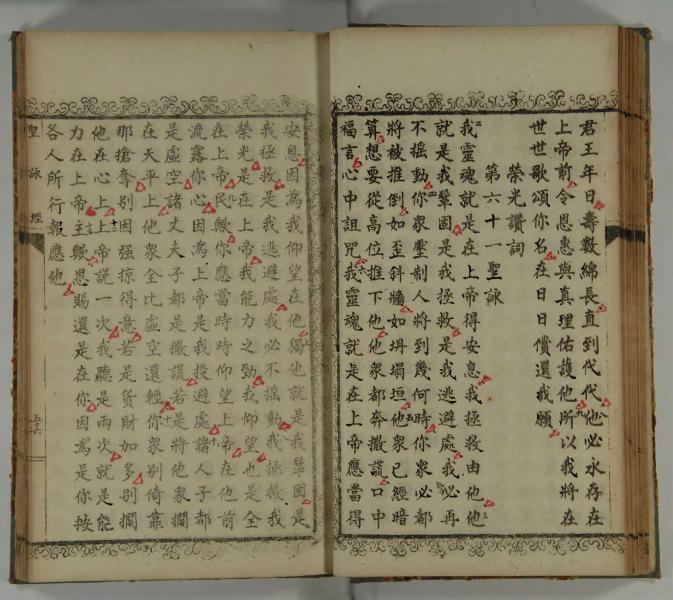 君王年日壽數綿長直到代代他必永存在
上帝前令恩惠與真理佑護他所以我將在
世世歌頌你名在日日償還我願
榮光讚詞
第六十一聖詠
我靈魂就是在上帝得安息我拯救由他他
就是我鞏固是我拯救是我逃避處我必再
不搖動你眾壓制人將到幾何時你眾必都
將被推倒如歪斜牆如坍塌垣他眾已經暗
算想要從高位推下他他眾都奔撒謊口中
福言心中詛咒我靈魂就是在上帝應當得
安息因為我仰望在他獨他就是我鞏固是
我拯救是我逃避處我必不搖動我拯救我
榮光是在上帝我能力之勁我仰望也是全
在上帝民歟你應當時時仰望上帝在他前
流露你心因為上帝是我投避處諸人子都
是虛空諸丈夫子都是撒謊若是將他眾擱
在天平上他眾全比虛空還輕你眾別倚靠
那搶奪別因强掠得意若是貨財加多別擱
他在心上上帝說一次我聽是兩次就是能
力在上帝主歟恩賜還是在你因為是你按
各人所行報應他
聖詠經